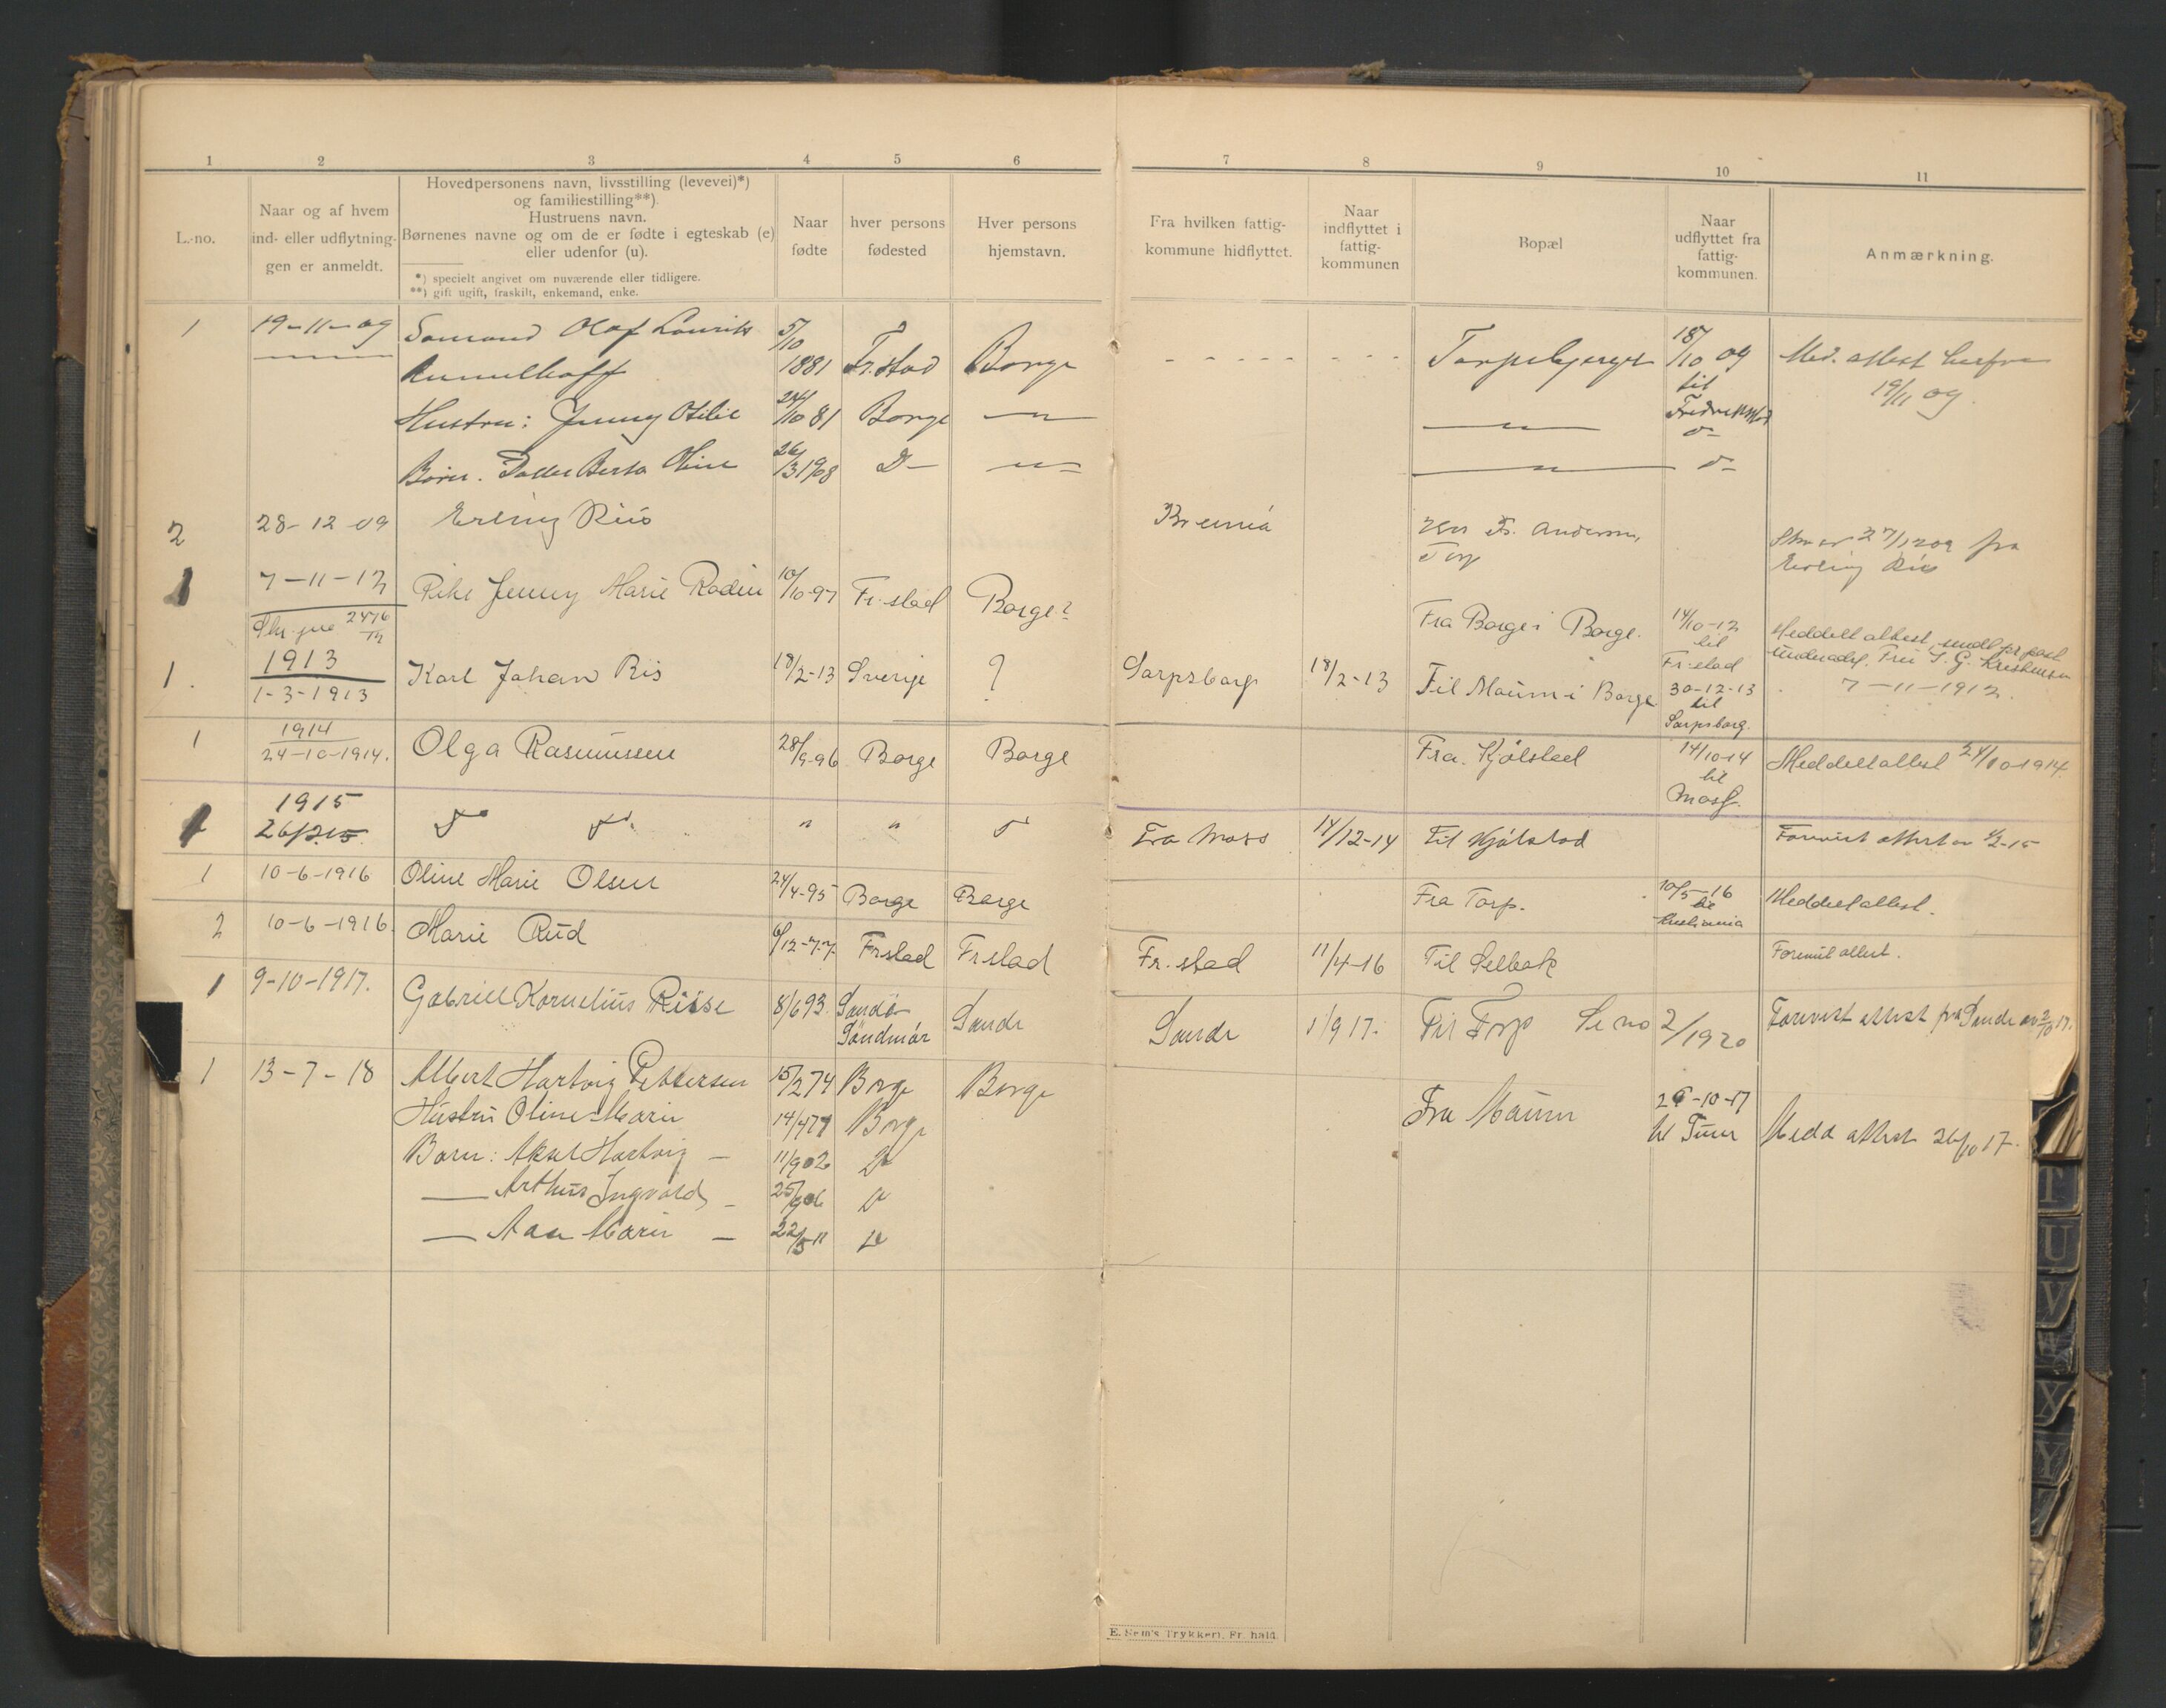 1 2 3 4 5 6 7 8 9 10 11
L.-no.
Naar og af hvem
ind- eller udflytnin-
gen er anmeldt.
Hovedpersonens navn, livsstilling (levevei)*)
og familiestilling**).
Hustruens navn.
Børnenes navne og om de er fødte i egteskab (e)
eller udenfor (u).
*) specielt angivet om nuværende eller tidligere.
**) gift ugift, fraskilt, enkemand, enke.
Naar
fødte
hver persons
fødested
Hver persons
hjemstavn.
Fra hvilken fattig-
kommune hidflyttet.
Naar
indflyttet i
fattig-
kommunen
Bopæl
Naar
udflyttet fra
fattig-
kommunen.
Anmærkning.
1 19-11-09 Sømand Olaf Laurits 5/10 18/10 09 Med. attest herfra
1881 Fr.stad Borge Torpebjerget til 19/11 09.
Hustru: Jenny Otilie 24/10 81 Borge — " — — " — Fredrikstad
Børn. Datter Berta Oline 26/3 1908 D— — " — — " —
2 28-12-09 Erling Riis Hos Fr. Andersen,
Torp
27/12 09 fra
Erling Riis
1 7-11-12 Pike Jenny Marie 10/10-97 Fr.stad Borge?
2476/12
Fra Borge i Borge. 14/10-12
til
Fr.stad
Meddelt attest
7-11-1912.
1913
1. 1-3-1913 Karl Johan Ris 18/2-13 Sverige ? Sarpsborg 18/2-13 Til Maum i Borge 30-12-13
til
Sarpsborg.
1914
1 24-10-1914. Olga Rasmussen 28/9-96 Borge Borge Fra Kjølstad 14/10-14 Meddelt attest 24/10 1914.
til
Moss.
1915
1 26/2.15 " " Fra Moss 14/12-14 Til Kjølstad Forevist attest av 1/2-15
1 10-6-1916 Oline Marie Olsen 24/4-95 Borge Borge Fra Torp. 10/5-16 Meddelt attest.
til
Kristiania
2 10-6-1916. Marie Rud 6/12-77 Fr.stad Fr.stad Fr.stad 11/4-16 Til Selbak Forevist attest.
1 9-10-1917. Gabriel Kornelius Risse 8/6 93. Sandø Sande Sande 1/9 17. Til Torp Se no 2/1920 Forevist attest fra Sande av 2/10 17.
Søndmør
1 13-7-18 Albert Hartvig Pettersen 15/2 74 Borge Borge Fra Maum 26-10-17
Hustru Oline Marie 14/4 77 Borge til Tune Medd attest 26/10 17.
Barn: Aksel Hartvig — 11/9 02
— Arthur Ingvald — 25/9 06
— Aase Marie — 22/5 11
E. Sem's Trykkeri, Fr. hald.
T
U
V
X
Y